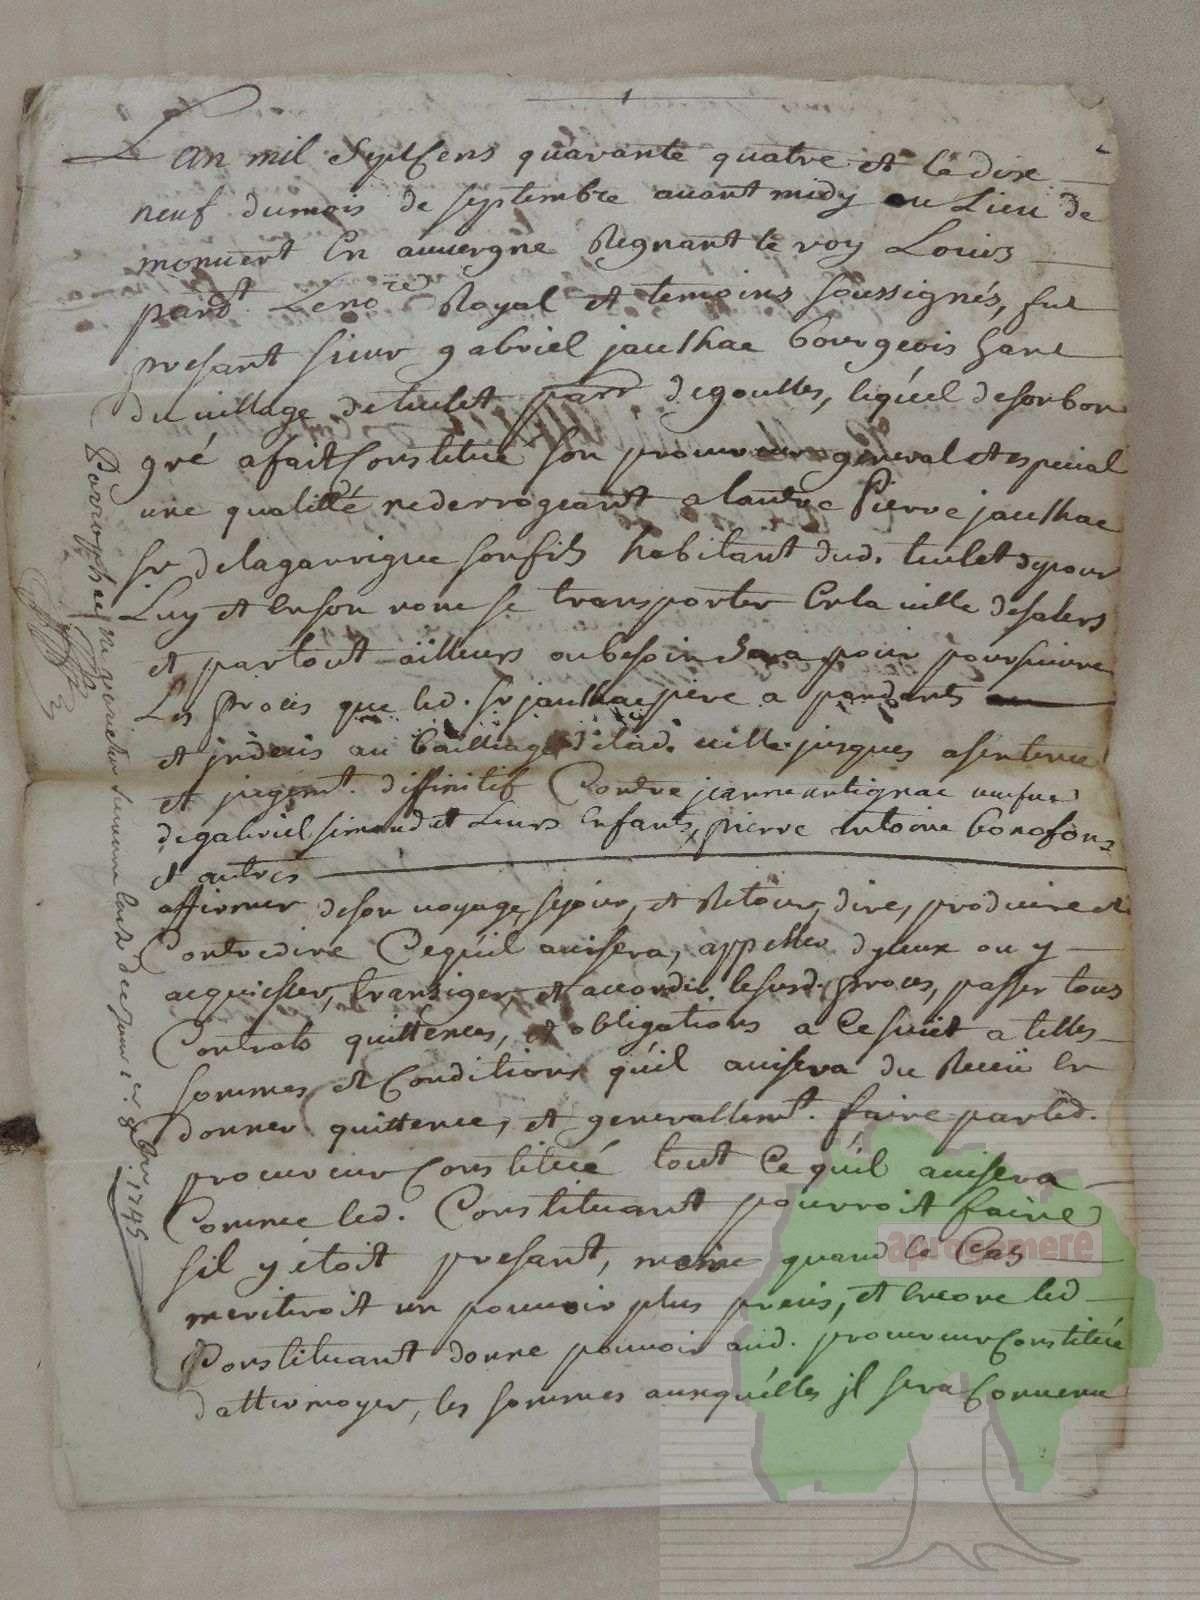 Lan mil Septcens quarante quatre et le dixe
neuf dumois de septembre auant midy au Lieu de
monuert En auuergne Regnant le roy Louis
pard.t Leno.re Royal et temoins soussignés, fut
presant sieur gabriel jaulhac bourgeois hant
du uillage detulet parr degoulles, lequel desonbon
gré afait Constitué son procureur general et especial
une qualitté nederrogeant a lautre Pierre jaulhac
sr delagarrigue sonfils habitant dud. tulet pour
Luy et Enson nom se transporter Enla uille desalers
et partout ailleurs oubesoin Sera pour poursuiure
Les proces que led. sr jaulhac pere a pendents
et jndecis au bailliage delad. uille jusques asentence
et jugem.t diffinitif Contre jeanne antignac ueufue
degabriel simond et Leurs Enfants, pierre antoine bonafons
et autres
affirmer deson uoyage, sejour, et Retour, dire, produire et
Contredire Cequil auisera, appeller dyceux ou y
acquiesser, transiger, et accorder lesusd. proces, passer tous
Contrats quittences, et obligations a Cesujet a telles
sommes et Conditions quil auisera du Receu En
donner quittence, et generallem.t faire par led.
procureur Constitué tout Ce quil auisera
Comme led. Constituant pourroit faire
sil y étoit presant, meme quand le Cas
meriteroit un pouuoir plus precis, et Encore led
Constituant donne pouuoir aud. procureur Constitué
dattermoyer, les sommes auxquelles jl sera Conuenu
Parrapha ne uarietur suiuant lacte dece jour 1.er 8bre 1745
aprogemere